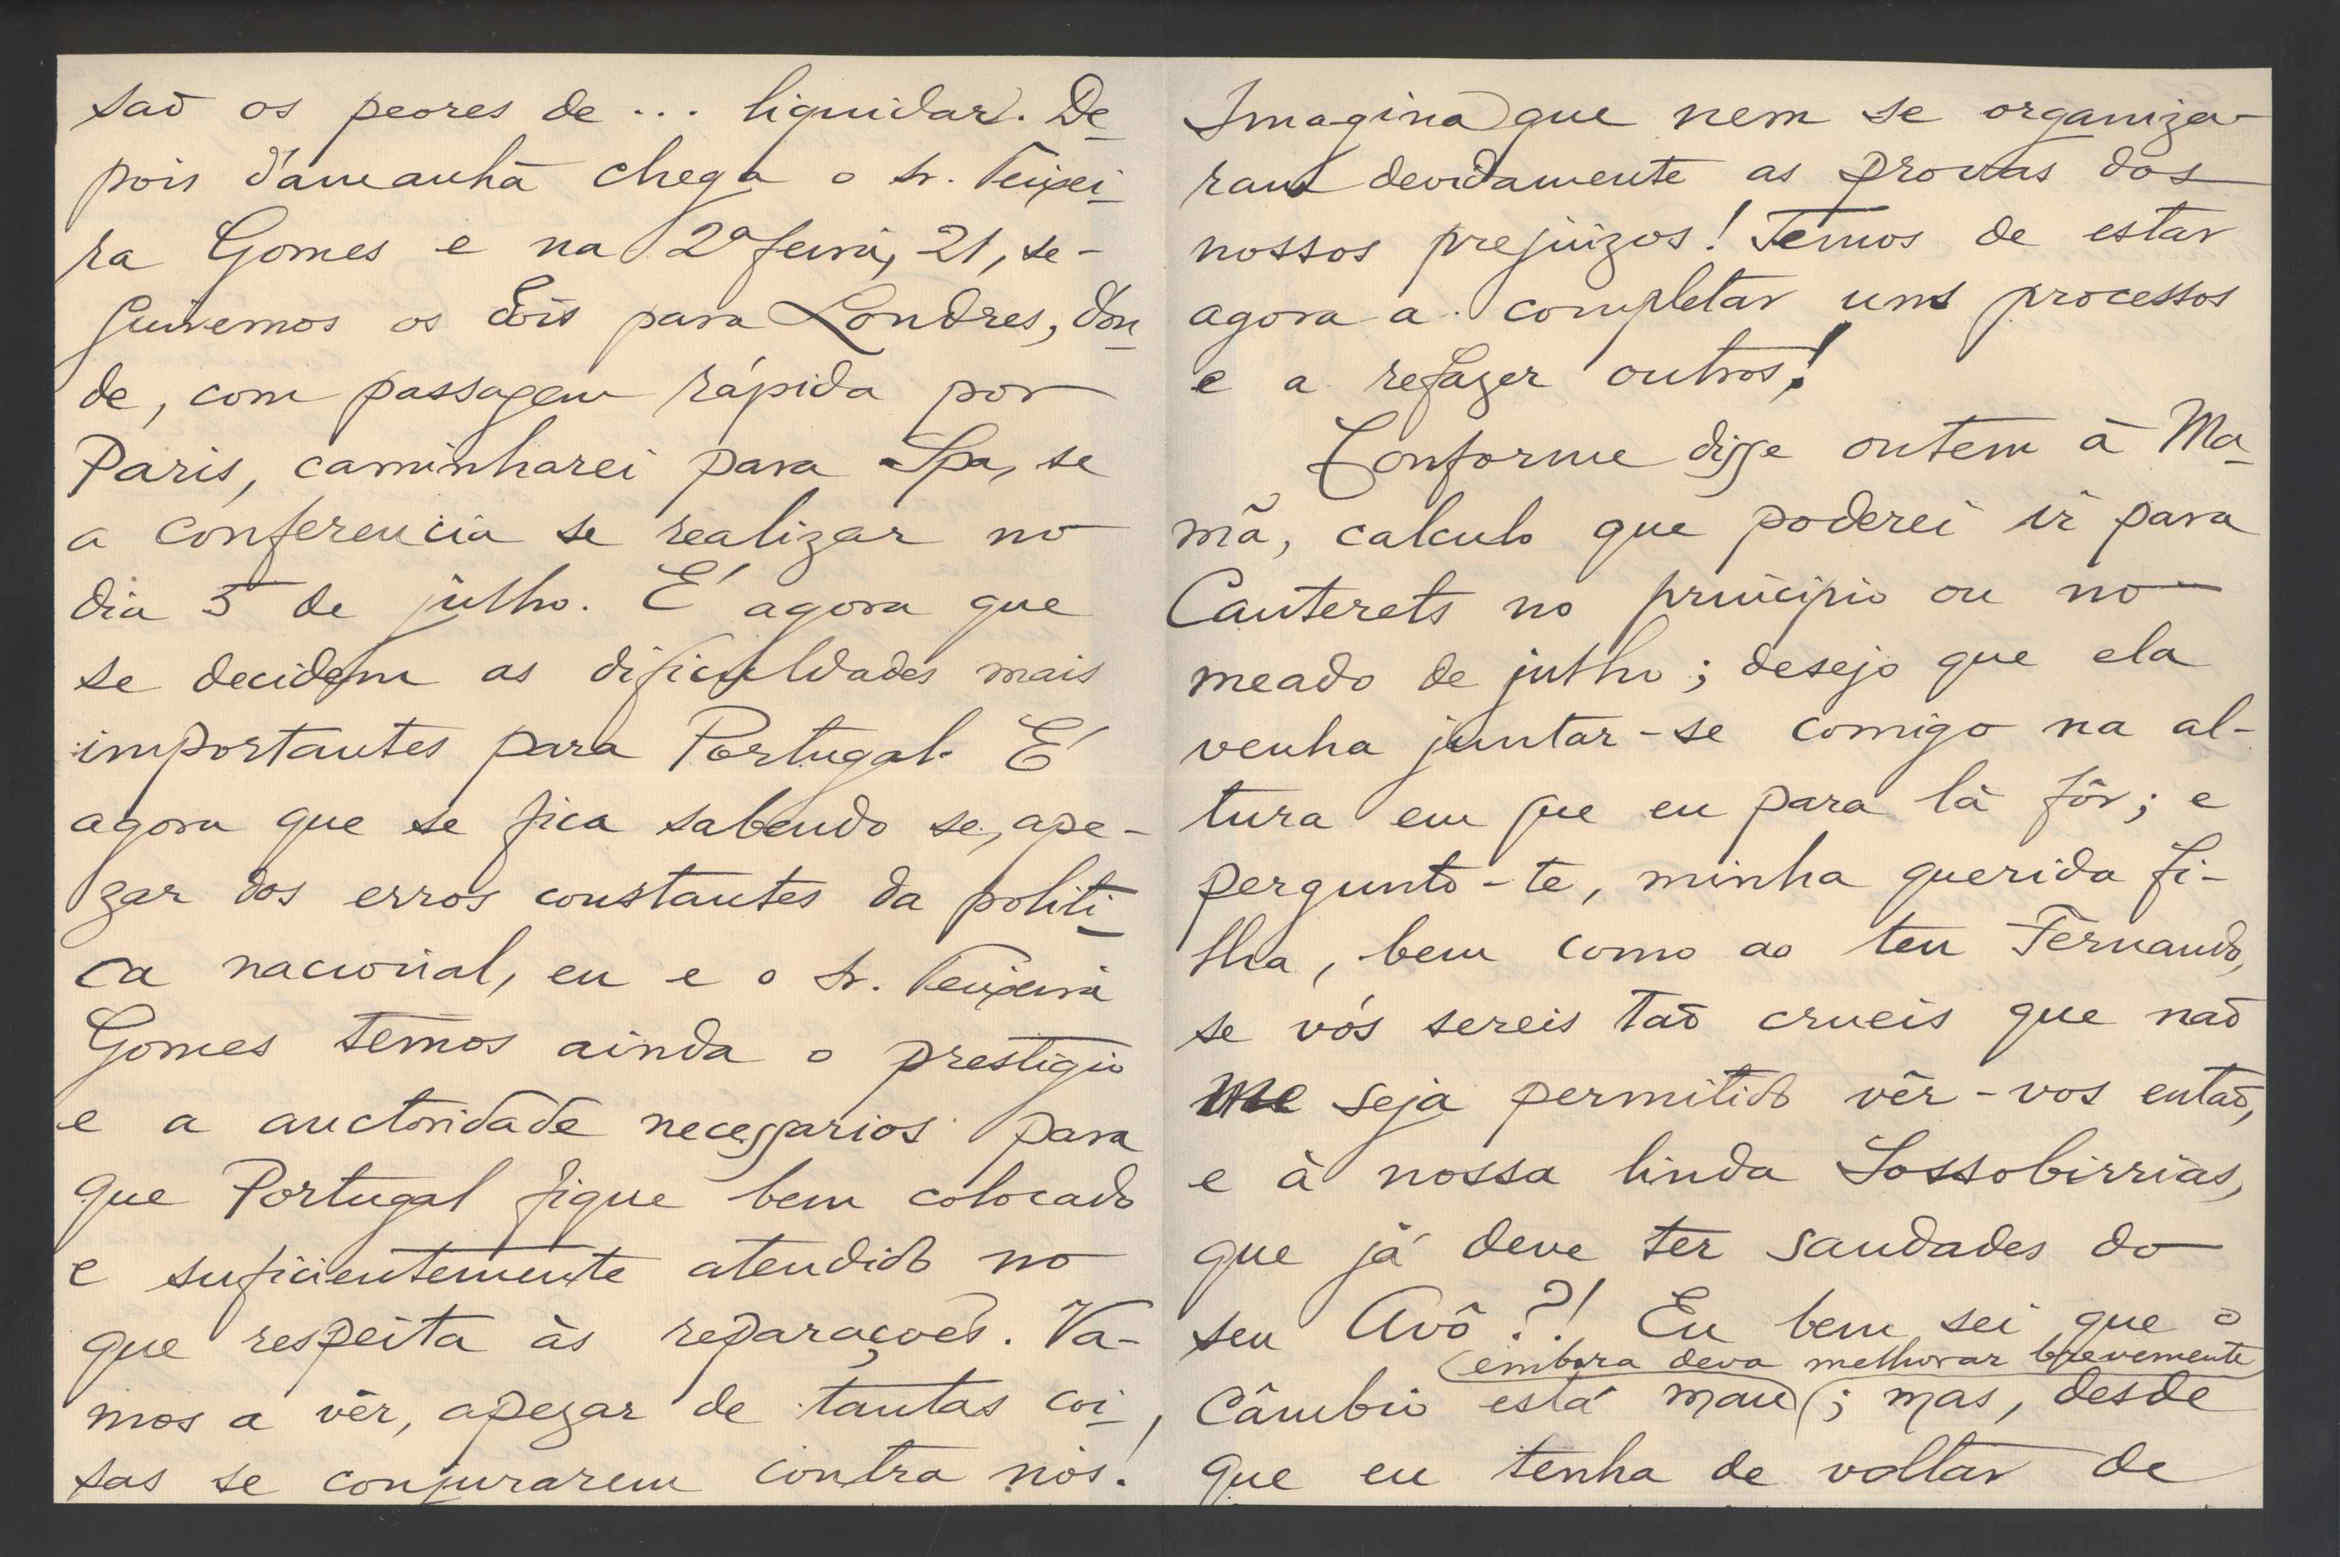 saõ os peores de ... liquidar. De-
pois d'amanhã chega o sr. Teixei-
ra Gomes e na 2ª feira, 21, se-
guiremos os dois para Londres, don-
de, com passagem rápida por
Paris, caminharei para Spa, se
a conferencia se realizar no
dia 5 de julho. É agora que
se decidem as dificuldades mais
importantes para Portugal. É
agora que se fica sabendo se, ape-
zar dos erros constantes da politi-
ca nacional, eu e o sr. Teixeira
Gomes temos ainda o prestigio
e a auctoridade necessarios para
que Portugal fique bem colocado
e suficientemente atendido no
que respeita às reparaçoẽs. Va-
mos a vêr, apezar de tantas coi-
sas se conjurarem contra nós.
Imagina que nem se organiza-
ram devidamente as provas dos
nossos prejuizos! Temos de estar
agora a completar uns processos
e a refazer outros!
Conforme disse ontem à Ma-
mã, calculo que poderei ir para
Cauterets no principio ou no
meado de julho; desejo que ela
venha juntar-se comigo na al-
tura em que eu para lá fôr; e
pergunto-te, minha querida fi-
lha, bem como ao teu Fernando,
se vós sereis taõ crueis que naõ
me seja permitido vêr-vos entaõ,
e à nossa linda Sossobirrias,
que já deve ter saudades do
seu Avô?! Eu bem sei que o
(embora deva melhorar brevemente)
câmbio está mau; mas, desde
que eu tenha de voltar de